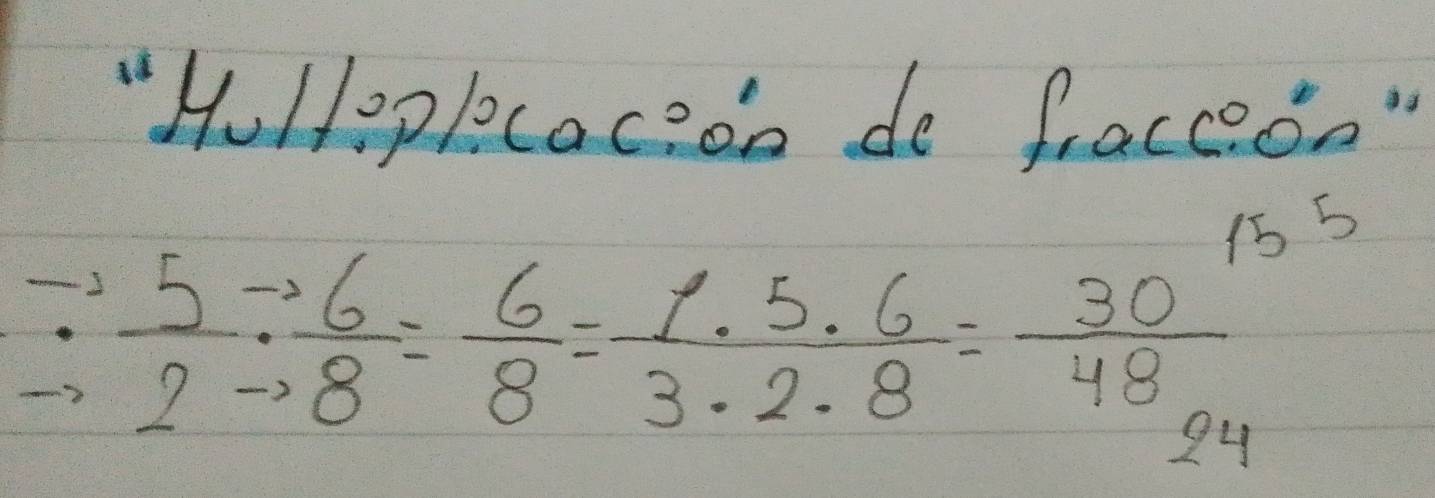 "Multiplicación de fracción"
→ · 5/2 → · 6/8 = 6/8 = 1·5·6/3·2·8 = 30/48 15 5
→ → 24